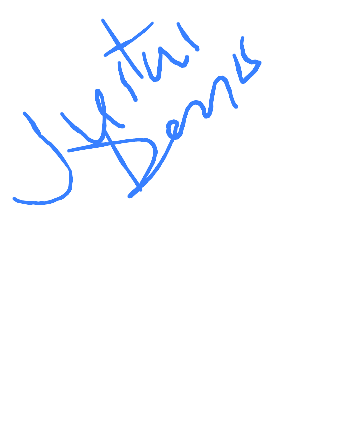 Justin
Dennis